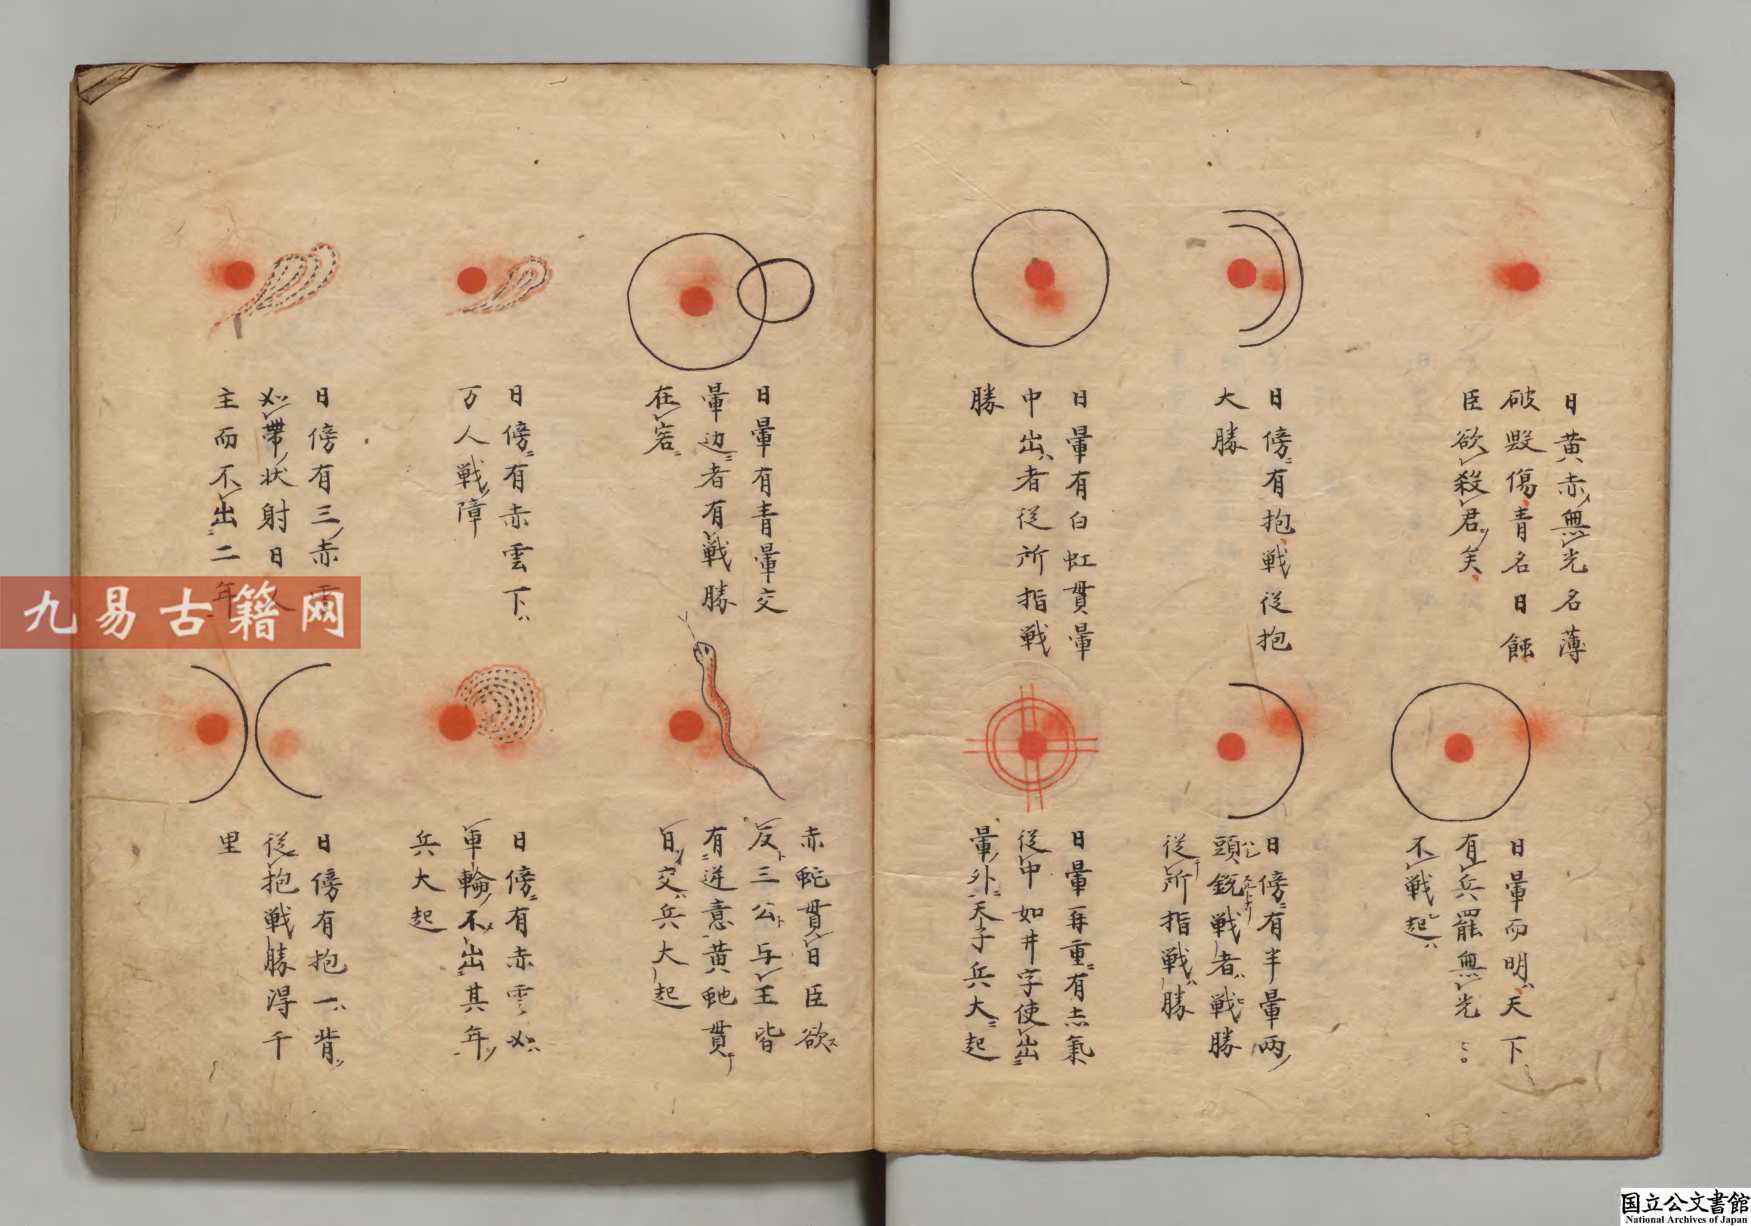 日黄赤無光名薄
破毀傷青名日蝕
臣欲殺君矣
日傍有抱戦従抱
大勝
日暈有白虹貫暈
中出者従所指戦
勝
日暈而明天下
有兵罷無光〻
不戦起
日傍有半暈両
頭鋭戦者戦勝
従所指戦勝
日暈再重有赤氣
従中如井字使出
暈外天子兵大起
日暈有青暈交
暈边者有戦勝
在
日傍有赤雲下
万人戦障
日傍有三赤雲
如帯状射日人
主而不出二年
赤蛇貫日臣欲
反三公与王皆
有逆意黄虵貫
日交兵大起
日傍有赤雲如
車輪不出其年
兵大起
日傍有抱一背
従抱戦勝得千
里
九易古籍网
国立公文書館
National Archives of Japan